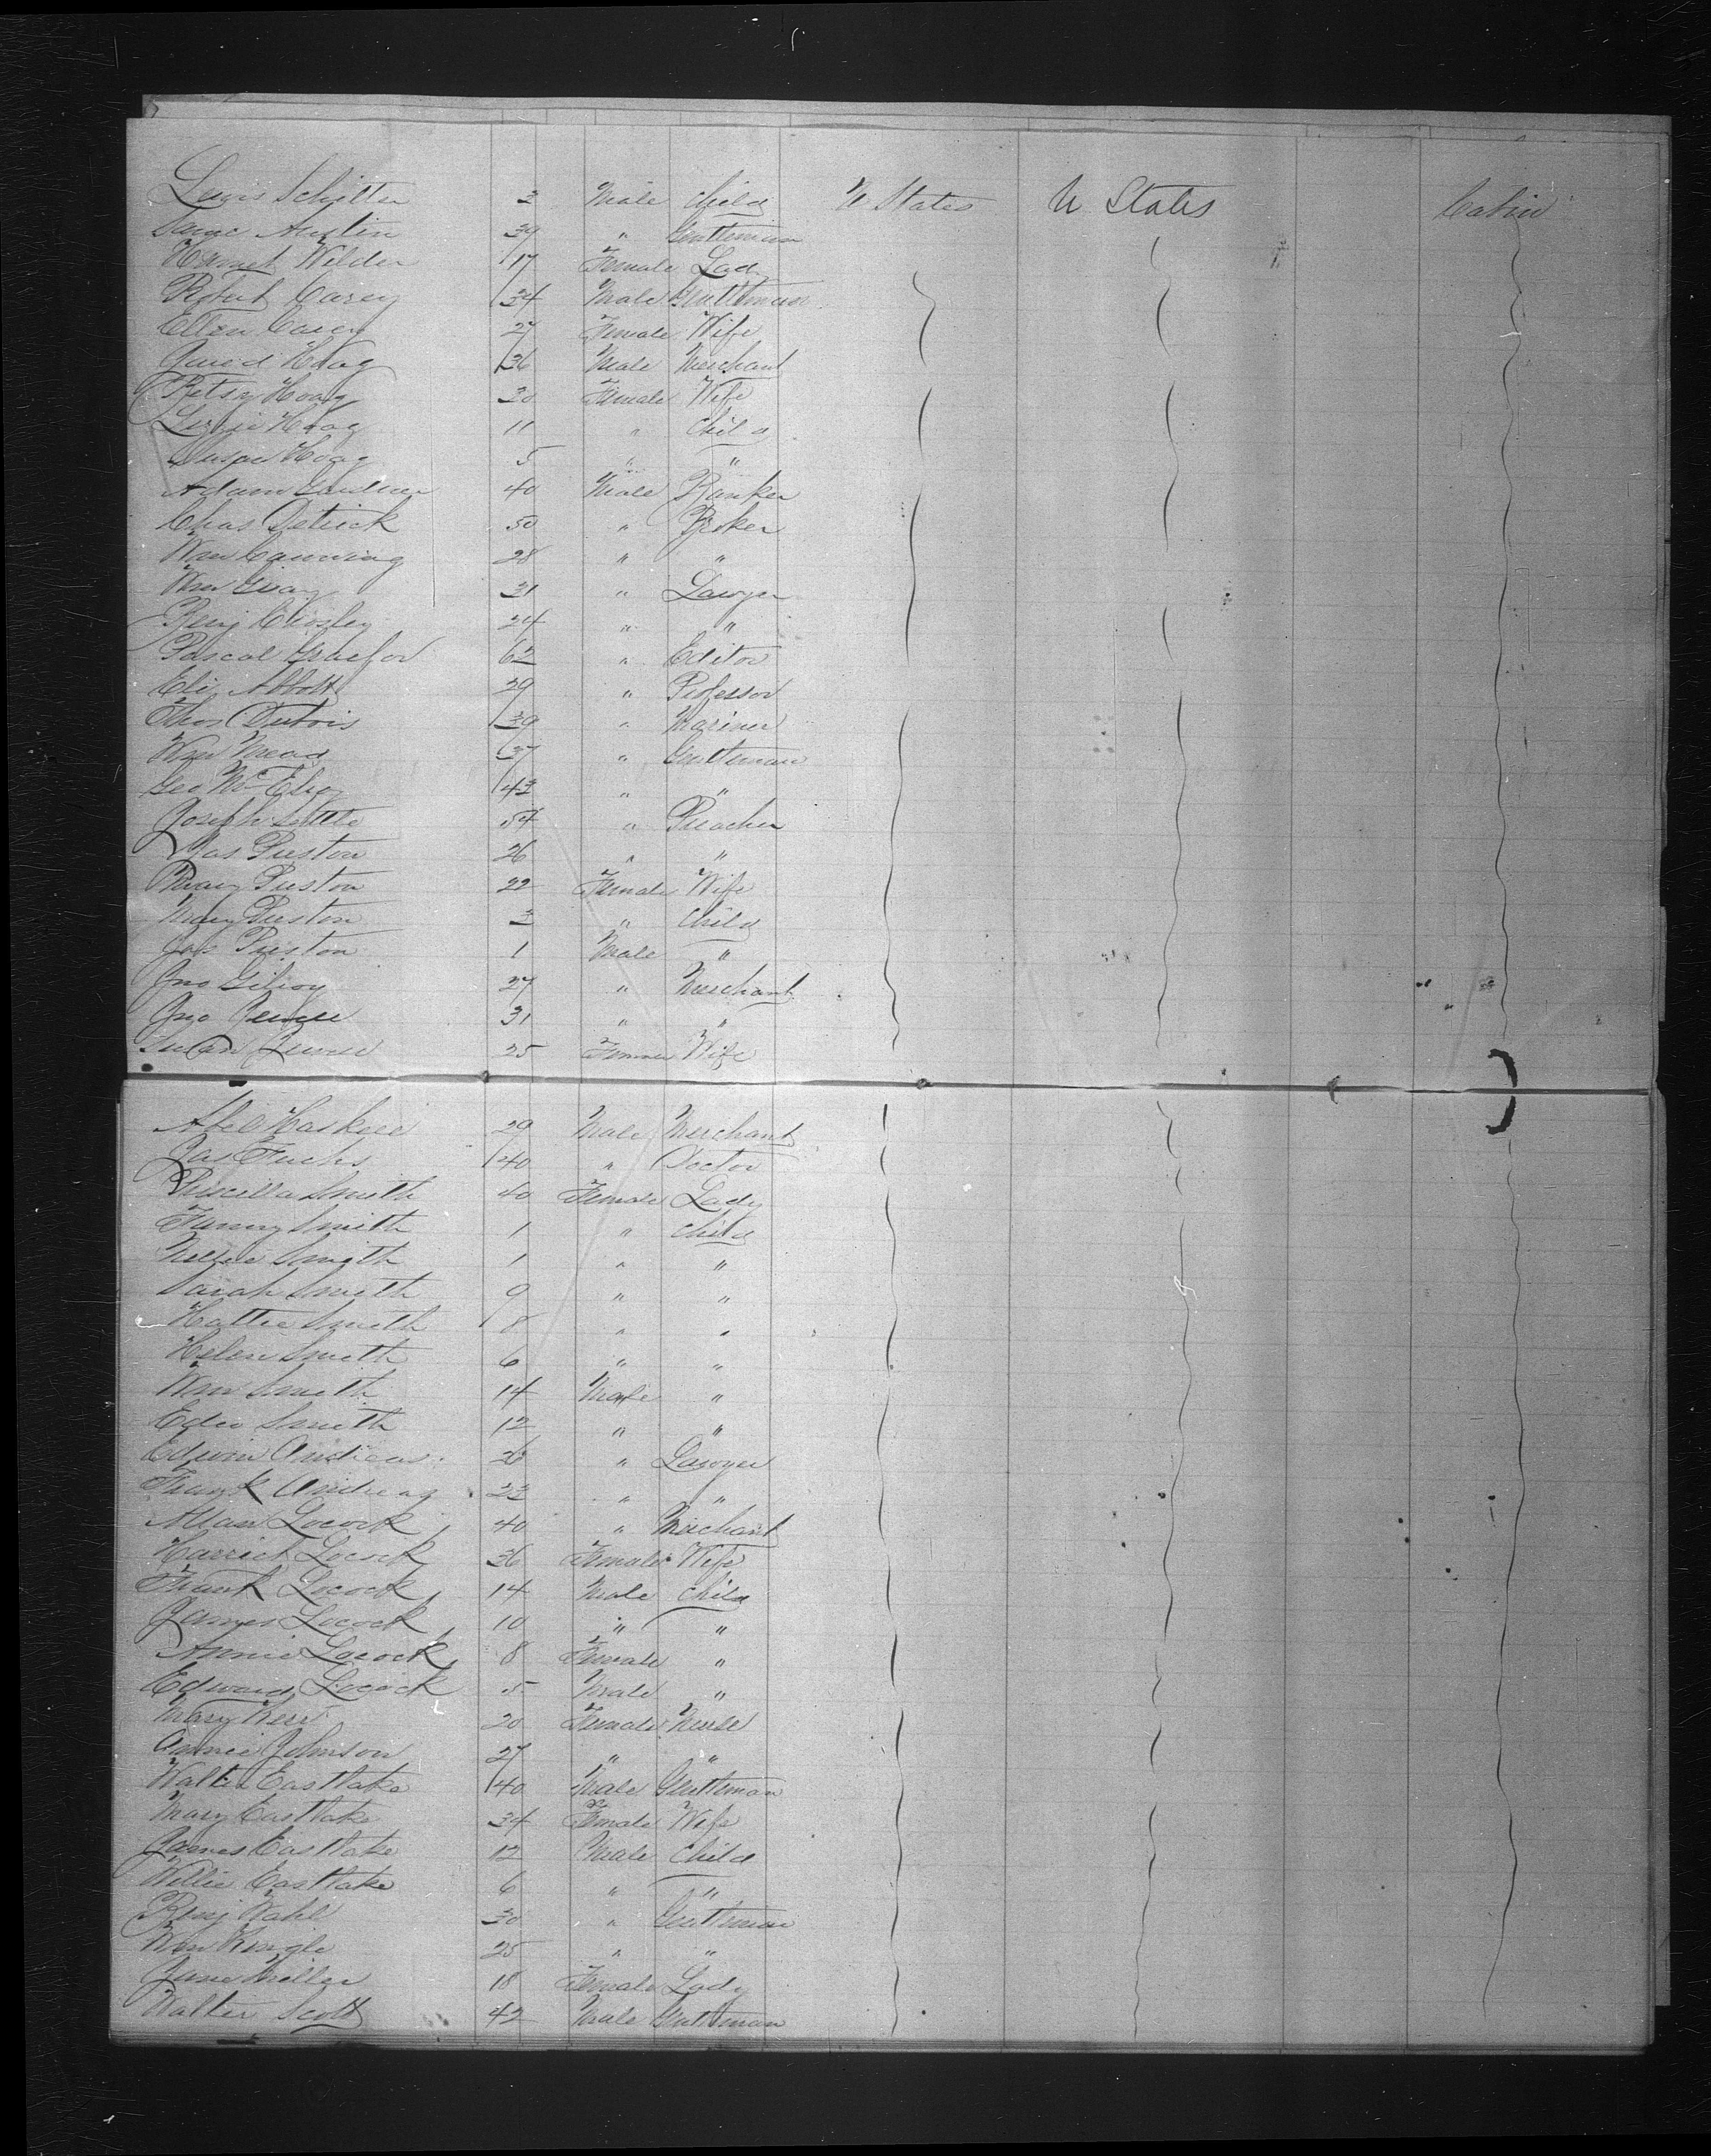 Lewis Schilten 3 Male Child U States U States Cabin
Isaac Austin 39 " Gentleman
Harriet Wilder 17 Female Lady
Robert Carey 34 Male Gentleman
Ellen Carey 27 Female Wife
David Hoag 36 Male Merchant
Betsy Hoag 30 Female Wife
Lizzie Hoag 11 " Child
Susan Hoag 5 " "
Adam Gardner 40 Male Banker
Chas Detrick 50 " Broker
Wm Canning 28 " "
Wm Gray 31 " Lawyer
Benj Crosley 24 " "
Pascal 62 " Editor
Eli Abbott 29 " Professor
Thos Dubois 39 " Mariner
Wm Mead 37 " Gentleman
Geo 43 " "
Joseph Little 54 " Preacher
Jas Preston 26 " "
Mary Preston 22 Female Wife
Mary Preston 3 " Child
Jas Preston 1 Male "
Jno Gilroy 27 " Merchant
Jno Jewell 31 " "
Susan Jewell 25 Wife
Abel Haskell 29 Male Merchant
Jas Fuchs 40 " Doctor
Priscilla Smith 40 Female Lady
Fanny Smith 1 " Child
Nellie Smith 1 " "
Sarah Smith 9 " "
Hattie Smith 8 " "
Helen Smith 6 " "
Wm Smith 14 Male "
Smith 12 " "
Edwin Andreas 26 " Lawyer
Frank Andreas 23 " "
Allan Locock 40 " Merchant
Harriet Locock 36 Female Wife
Frank Locock 14 Male Child
James Locock 10 " "
Annie Locock 8 Female "
Edward Locock 5 Male "
Mary Kerr 20 Female Nurse
Annie Johnson 27 " "
Walter Eastlake 40 Male Gentleman
Mary Eastlake 34 Female Wife
James Eastlake 12 Male Child
Willie Eastlake 6 " "
Benj Wahl 30 " Gentleman
Wm 25 " "
Jane Miller 18 Female Lady
Walter Scott 42 Male Gentleman